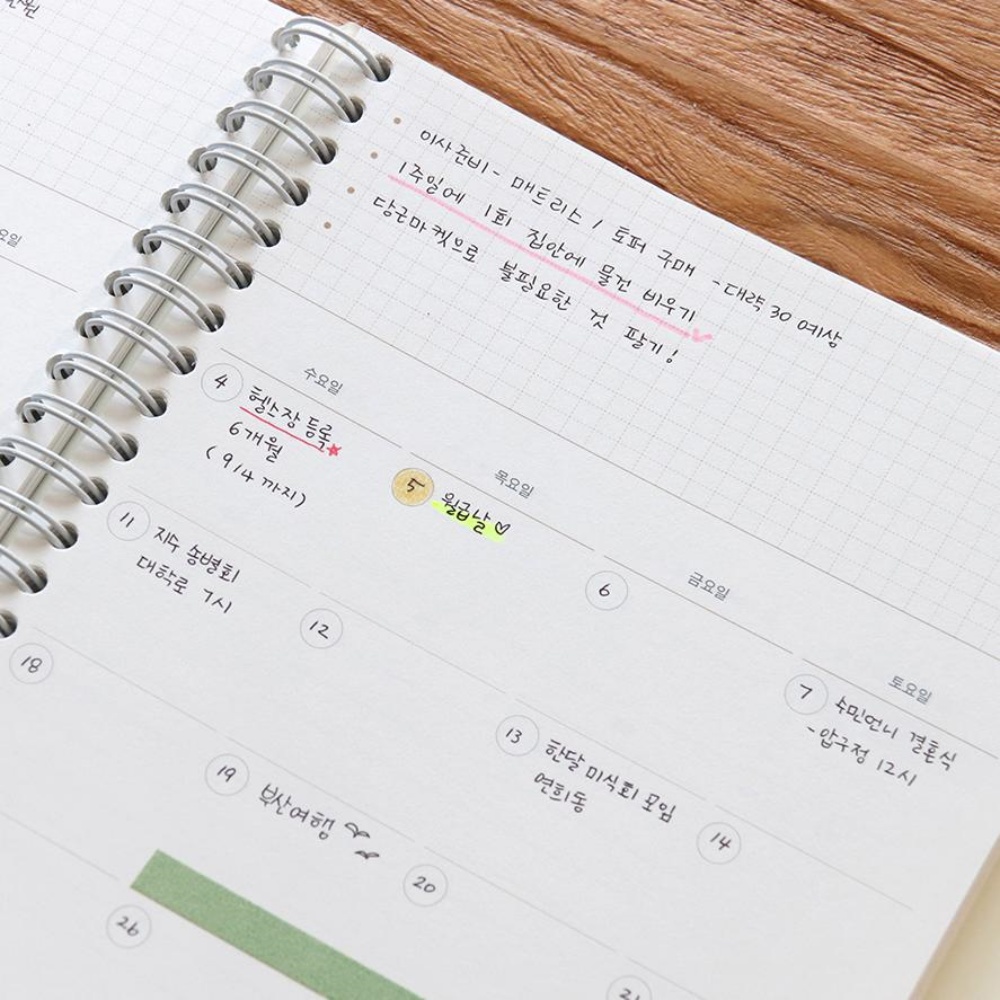 이사준비 - 매트리스 / 토퍼 구매 - 대략 30 예상
1주일에 1회 집안에 물건 비우기
당근마켓으로 불필요한 것 팔기!
수요일
목요일
금요일
토요일
4 헬스장 등록
6개월
(9/4 까지)
5 월급날♡
6
7 수민언니 결혼식
-압구정 12시
11 지수 송별회
대학로 7시
12
13 한달 미식회 모임
연희동
14
18
19 부산여행
20
21
26